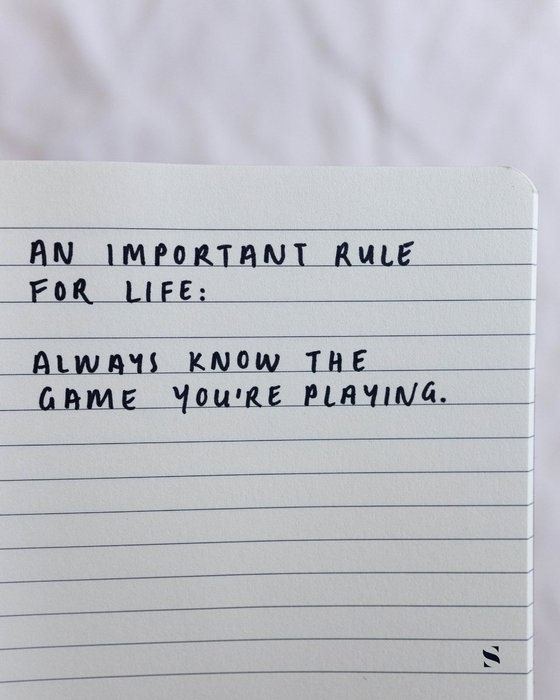 AN IMPORTANT RULE
FOR LIFE:
ALWAYS KNOW THE
GAME YOU'RE PLAYING.